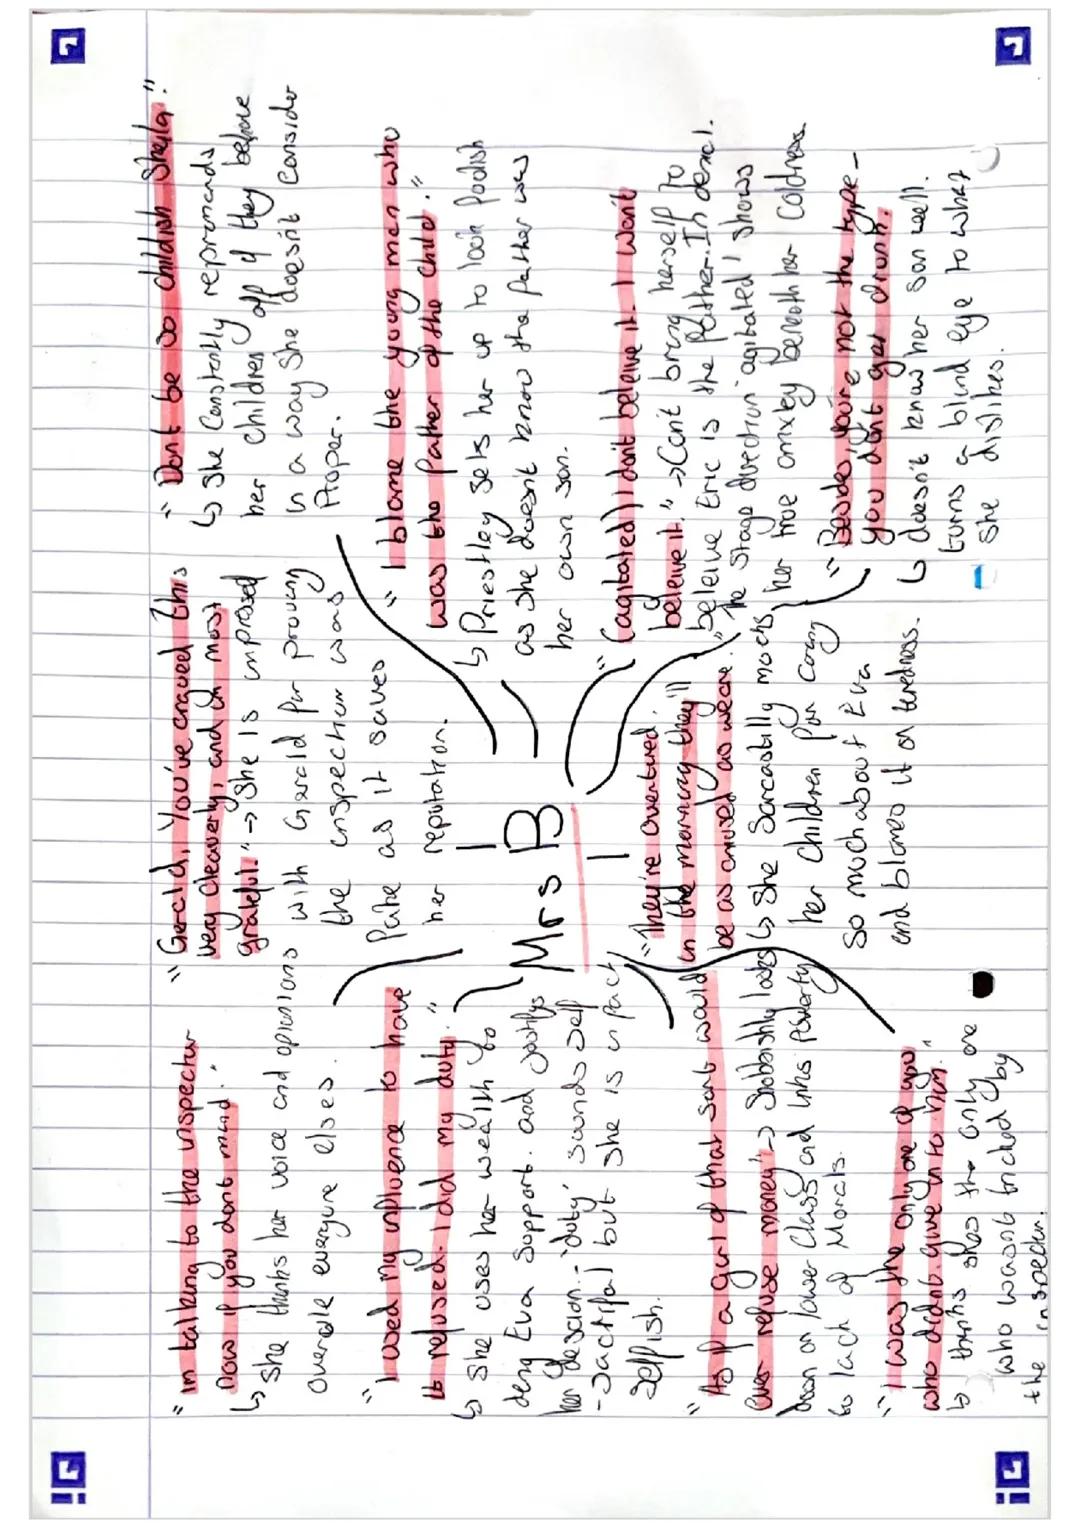 "Im talking to the inspector
now if you dont mind."
↳ She thinks her voice and opinions
overule everyone elses.
"Gerald, You've craued this
very cleaverly, and im most
grateful." → She is impressed
with Gerald for proving
the inspection was
fake as it saves
her reputation.
"Dont be so childish Sheila."
↳ She Constantly reprimands
her children off if they behave
in a way she doesn't consider
Proper.
"I used my influence to have
it refused. I did my duty."
↳ She uses her wealth to
deny Eva Support. and justifys
her descion. - 'duty' sounds self
- sacrifal but she is in fact,
selfish.
Mrs B
"I blame the young man who
was the father of the child."
↳ Priestley sets her up to look foolish
as she doesn't know the father was
her own son.
"(agitated) I dont beleive it. I won't
beleive it." → Can't bring herself to
beleive Eric is the father. In denial.
The stage direction 'agitated' shows
her true anxiety beneath her coldness.
"As if a girl of that sort would
ever refuse money" → Snobbishly looks
down on lower Class and links Poverty
to lack of Morals.
"They're overtured.
in the morning they'll
be as amused as we are."
↳ She Sarcastilly mocks
her children for caring
so much about Eva
and blames it on tiredness.
"Besides, you're not the type -
you dont get drunk."
↳ doesn't know her son well.
turns a blind eye to what
she dislikes.
"I was the only one of you
who didnt give in to him."
↳ thinks shes the only one
who wasnt tricked by
the inspector.